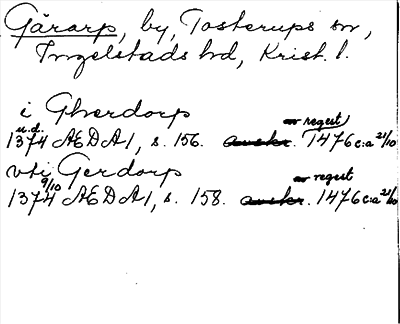 Gärarp, by, Tosterups sn,
Ingelstads hd, Krist. l.
i Gherdorp
u.d. av regest
1374 ÆDA1, s. 156. avskr. 1476 c:a 21/10
vti Gerdorp
9/10 av regest
1374 ÆDA1, s. 158. avskr. 1476 c:a 21/10